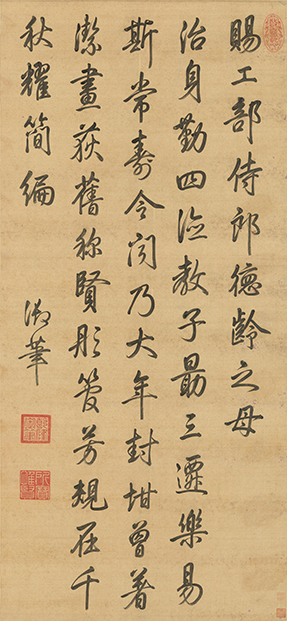 賜工部侍郎德齡之母
治身勤四教子最三遷樂易
斯常壽令聞乃大年封坩曾著
潔畫荻舊稱賢彤管芳規在千
秋耀簡編
御筆